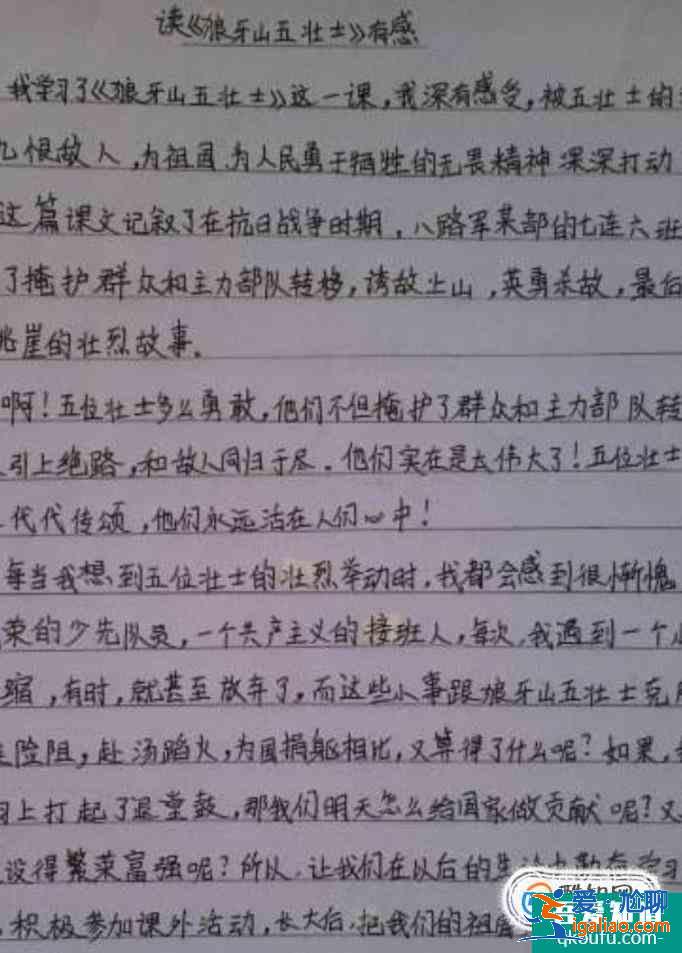 读《狼牙山五壮士》有感
我学习了《狼牙山五壮士》这一课，我深有感受，被五壮士的
仇恨敌人，为祖国、为人民勇于牺牲的无畏精神深深打动
这篇课文记叙了在抗日战争时期，八路军某部的七连六班
了掩护群众和主力部队转移，诱敌上山，英勇杀敌，最后
跳崖的壮烈故事。
啊！五位壮士多么勇敢，他们不但掩护了群众和主力部队转
引上绝路，和敌人同归于尽。他们实在是太伟大了！五位壮士
代代传颂，他们永远活在人们心中！
每当我想到五位壮士的壮烈举动时，我都会感到很惭愧
荣的少先队员，一个共产主义的接班人，每次，我遇到一个小
缩，有时，就甚至放弃了，而这些小事跟娘牙山五壮士克
险阻，赴汤蹈火，为国捐躯相比，又算得了什么呢？如果，
上打起了退堂鼓，那我们明天怎么给国家做贡献呢？又
设得繁荣富强呢？所以，让我们在以后的生活中勤奋学习
，积极参加课外活动，长大后，把我们的祖国
爱尬聊
igaliao.com
qk5ufu.com